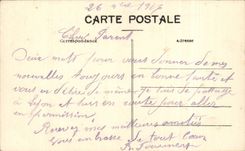 26 1917
CARTE POSTALE
Correspondance
Adresse
Cher Parent
Deux mots pour vous donner de mes
nouvelles toujours en bonne santé et
vous en désire de même je suis de passage
à Dijon et suis en route pour aller
en permission
Recevez mes meilleures amitiés
vous embrasse de tout cœur